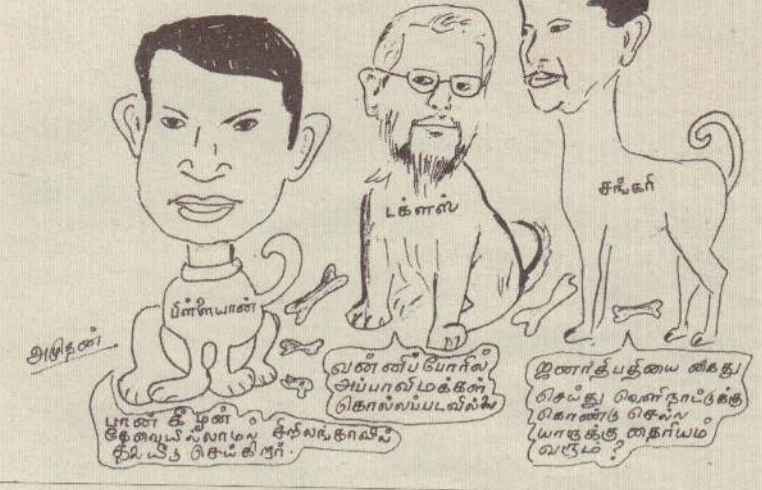 பிள்ளையான்
டக்ளஸ்
சங்கரி
அமுதன்
பான் கீ மூன்
தேவையில்லாமல் சிறிலங்காவில்
தலையீடு செய்கிறார்.
வன்னிப்போரில்
அப்பாவிமக்கள்
கொல்லப்படவில்லை
ஜனாதிபதியை கைது
செய்து வெளிநாட்டுக்கு
கொண்டு செல்ல
யாருக்கு தைரியம்
வரும் ?